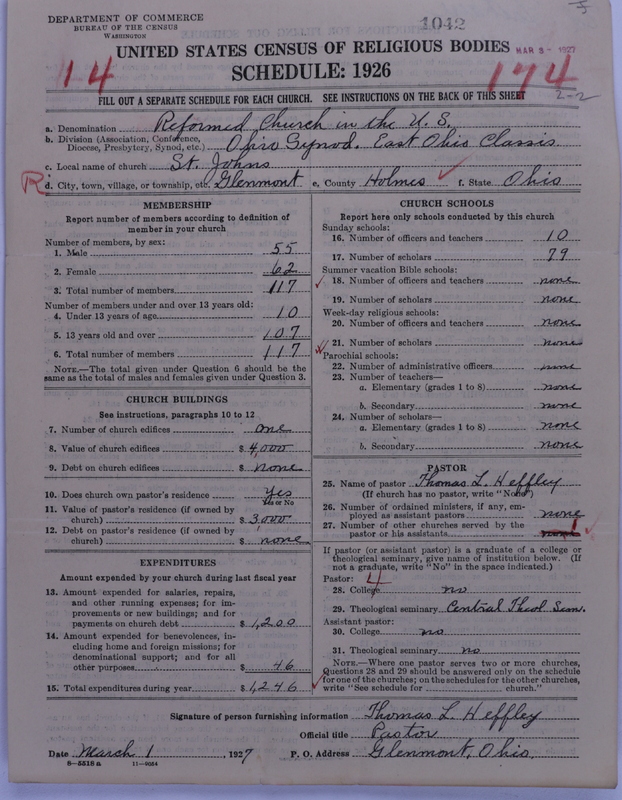 DEPARTMENT OF COMMERCE
BUREAU OF THE CENSUS
WASHINGTON
1042
UNITED STATES CENSUS OF RELIGIOUS BODIES
MAR 3 - 1927
SCHEDULE: 1926
14
174
FILL OUT A SEPARATE SCHEDULE FOR EACH CHURCH. SEE INSTRUCTIONS ON THE BACK OF THIS SHEET
2-2
a. Denomination Reformed Church in the U. S.
b. Division (Association, Conference, Diocese, Presbytery, Synod, etc.) Ohio Synod. East Ohio Classis
c. Local name of church St. Johns
R d. City, town, village, or township, etc. Glenmont e. County Holmes f. State Ohio
MEMBERSHIP
Report number of members according to definition of
member in your church
Number of members, by sex:
1. Male 55
2. Female 62
3. Total number of members 117
Number of members under and over 13 years old:
4. Under 13 years of age 10
5. 13 years old and over 107
6. Total number of members 117
NOTE.—The total given under Question 6 should be
same as the total of males and females given under Question 3.
CHURCH BUILDINGS
See instructions, paragraphs 10 to 12
7. Number of church edifices one
8. Value of church edifices $ 4,000
9. Debt on church edifices $ none
10. Does church own pastor's residence Yes
Yes or No
11. Value of pastor's residence (if owned by
church) $ 3,000
12. Debt on pastor's residence (if owned by
church) $ none
EXPENDITURES
Amount expended by your church during last fiscal year
13. Amount expended for salaries, repairs,
and other running expenses; for im-
provements or new buildings; and for
payments on church debt $ 1,200
14. Amount expended for benevolences, in-
cluding home and foreign missions; for
denominational support; and for all
other purposes $ 46
15. Total expenditures during year $ 1,246
CHURCH SCHOOLS
Report here only schools conducted by this church
Sunday schools:
16. Number of officers and teachers 10
17. Number of scholars 79
Summer vacation Bible schools:
18. Number of officers and teachers none
19. Number of scholars none
Week-day religious schools:
20. Number of officers and teachers none
21. Number of scholars none
Parochial schools:
22. Number of administrative officers none
23. Number of teachers—
a. Elementary (grades 1 to 8) none
b. Secondary none
24. Number of scholars—
a. Elementary (grades 1 to 8) none
b. Secondary none
PASTOR
25. Name of pastor Thomas L. Heffley
(If church has no pastor, write "None")
26. Number of ordained ministers, if any, em-
ployed as assistant pastors none
27. Number of other churches served by the
pastor or his assistants none 1
If pastor (or assistant pastor) is a graduate of a college or
theological seminary, give name of institution below. (If
not a graduate, write "No" in the space indicated.)
Pastor: 4
28. College no
29. Theological seminary Central Theol Sem.
Assistant pastor:
30. College no
31. Theological seminary no
NOTE.—Where one pastor serves two or more churches,
Questions 28 and 29 should be answered only on the schedule
for one of the churches; on the schedules for the other churches,
write "See schedule for church."
Signature of person furnishing information Thomas L. Heffley
Official title Pastor
Date March 1, 1927 P. O. Address Glenmont, Ohio.
8-5518 a 11-9054